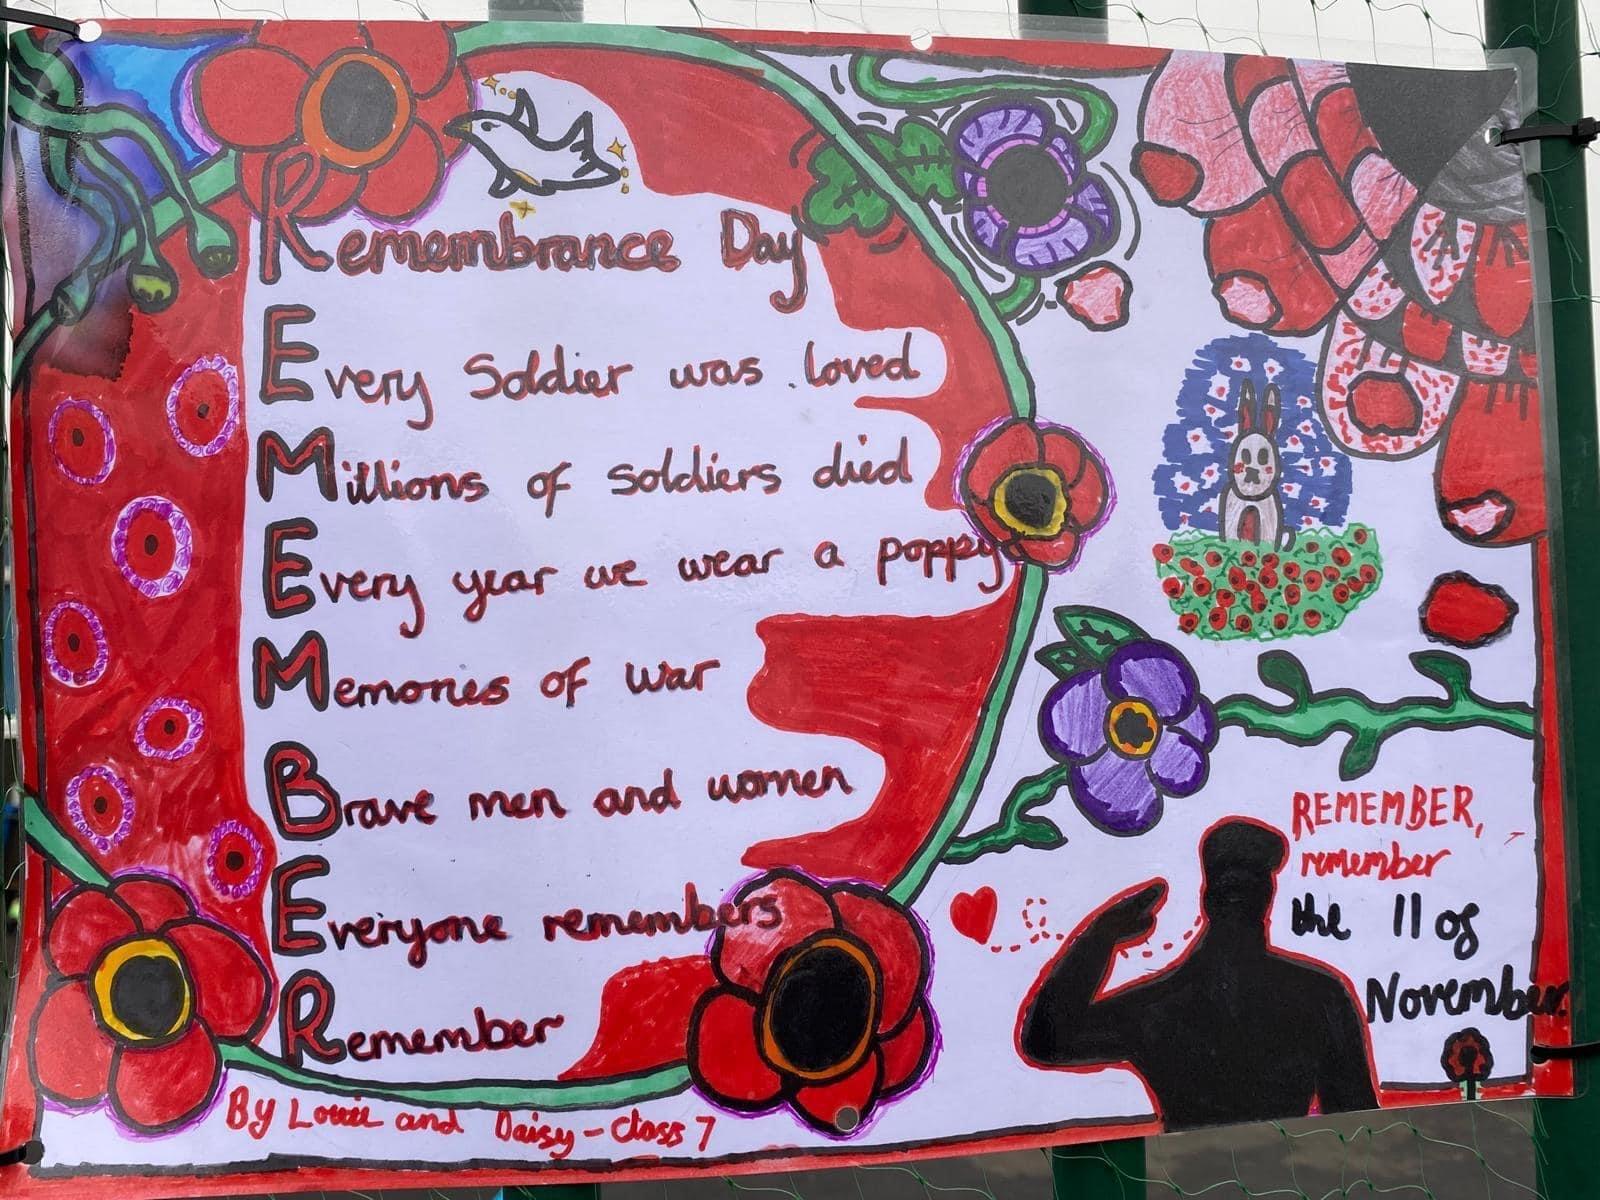 Remembrance Day
Every Soldier was loved
Millions of soldiers died
Every year we wear a poppy
Memories of war
Brave men and women
Everyone remembers
Remember
By Louie and Daisy - Class 7
REMEMBER,
remember
the 11 of
November.